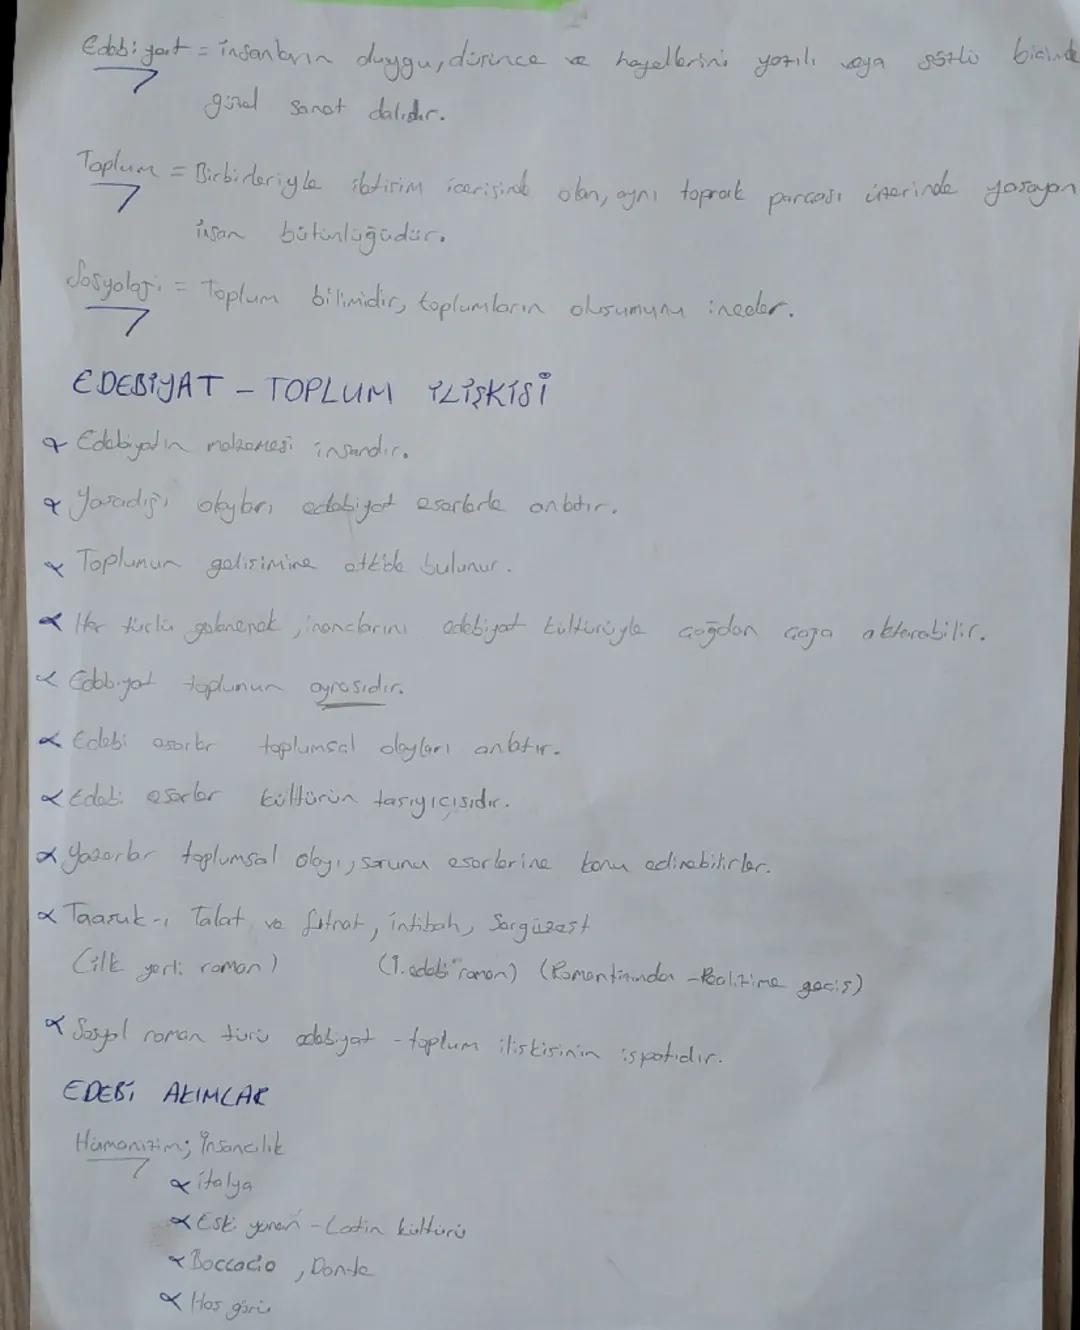 Edebiyat = insanların duygu, düşünce ve hayellerini yazılı veya sözlü biçimde
güzel sanat dalıdır.
Toplum = Birbirleriyle iletişim içerisinde olan, aynı toprak parçası üzerinde yaşayan
insan bütünlüğüdür.
Sosyoloji = Toplum bilimidir, toplumların oluşumunu inceler.
EDEBİYAT - TOPLUM İLİŞKİSİ
α Edebiyatın malzemesi insandır.
α Yaşadığı olayları edebiyat eserlerle anlatır.
α Toplumun gelişimine etkide bulunur.
α Her türlü gelenenek, inançlarını edebiyat kültürüyle çağdan çağa aktarabilir.
α Edebiyat toplumun aynasıdır.
α Edebi eserler toplumsal olayları anlatır.
α Edebi eserler kültürün taşıyıcısıdır.
α Yazarlar toplumsal olayı, sorunu eserlerine konu edinebilirler.
α Taaşuk-ı Talat ve fıtnat, intibah, Sergüzeşt
(ilk yerli roman) (1. edebi roman) (Romantizmden - Realizime geçiş)
α Sosyal roman türü edebiyat - toplum ilişkisinin ispatıdır.
EDEBİ AKIMLAR
Hümanizim; İnsancılık
α italya
α Eski yunan - Latin kültürü
α Boccacio, Dante
α Hoş görü